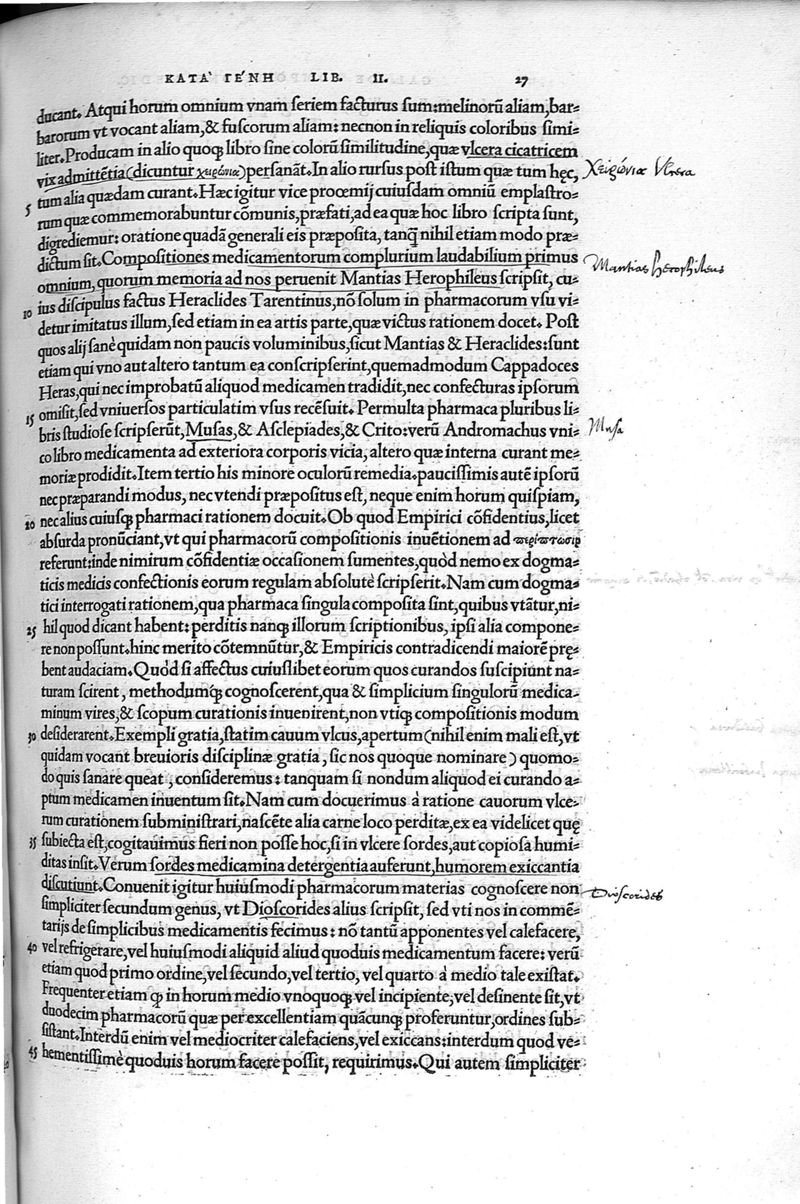 ΚΑΤΑ' ΓΕ'ΝΗ LIB. II. 27
ducant. Atqui horum omnium vnam ſeriem facturus ſum: melinorũ aliam, bar=
barorum vt vocant aliam, & fuſcorum aliam: necnon in reliquis coloribus ſimi=
liter. Producam in alio quoqꝫ libro ſine colorũ ſimilitudine, quæ vlcera cicatricem
vix admittẽtia (dicuntur χειρώνια) perſanãt. In alio rurſus poſt iſtum quæ tum hęc,
Χειρώνια Vlcera
5 tum alia quædam curant. Hæc igitur vice procemij cuiuſdam omniũ emplaſtro=
rum quæ commemorabuntur cõmunis, præfati, ad ea quæ hoc libro ſcripta ſunt,
digrediemur: oratione quadã generali eis præpoſita, tanq̃ nihil etiam modo præ=
dictum ſit. Compoſitiones medicamentorum complurium laudabilium primus
Mantias Herophileus
omnium, quorum memoria ad nos peruenit Mantias Herophileus ſcripſit, cu=
10 ius diſcipulus factus Heraclides Tarentinus, nõ ſolum in pharmacorum vſu vi=
detur imitatus illum, ſed etiam in ea artis parte, quæ victus rationem docet. Poſt
quos alij ſanè quidam non paucis voluminibus, ſicut Mantias & Heraclides: ſunt
etiam qui vno aut altero tantum ea conſcripſerint, quemadmodum Cappadoces
Heras, qui nec improbatũ aliquod medicamen tradidit, nec confecturas ipſorum
15 omiſit, ſed vniuerſos particulatim vſus recẽſuit. Permulta pharmaca pluribus li=
bris ſtudioſe ſcripſerũt, Muſas, & Aſclepiades, & Crito: verũ Andromachus vni=
Muſa
co libro medicamenta ad exteriora corporis vicia, altero quæ interna curant me=
moriæ prodidit. Item tertio his minore oculorũ remedia. pauciſſimis autẽ ipſorũ
nec præparandi modus, nec vtendi præpoſitus eſt, neque enim horum quiſpiam,
20 nec alius cuiuſqꝫ pharmaci rationem docuit. Ob quod Empirici cõfidentius, licet
abſurda pronũciant, vt qui pharmacorũ compoſitionis inuẽtionem ad περίπτωσιν
referunt: inde nimirum cõfidentiæ occaſionem ſumentes, quòd nemo ex dogma=
ticis medicis confectionis eorum regulam abſolutè ſcripſerit. Nam cum dogma=
tici interrogati rationem, qua pharmaca ſingula compoſita ſint, quibus vtãtur, ni=
25 hil quod dicant habent: perditis nanqꝫ illorum ſcriptionibus, ipſi alia compone=
re non poſſunt. hinc merito cõtemnũtur, & Empiricis contradicendi maiorẽ prę=
bent audaciam. Quòd ſi affectus cuiuſlibet eorum quos curandos ſuſcipiunt na=
turam ſcirent, methodumqꝫ cognoſcerent, qua & ſimplicium ſingulorũ medica=
minum vires, & ſcopum curationis inuenirent, non vtiqꝫ compoſitionis modum
30 deſiderarent. Exempli gratia, ſtatim cauum vlcus, apertum (nihil enim mali eſt, vt
quidam vocant breuioris diſciplinæ gratia, ſic nos quoque nominare) quomo=
do quis ſanare queat, conſideremus: tanquam ſi nondum aliquod ei curando a=
ptum medicamen inuentum ſit. Nam cum docuerimus à ratione cauorum vlce=
rum curationem ſubminiſtrari, naſcẽte alia carne loco perditæ, ex ea videlicet quę
35 ſubiecta eſt, cogitauimus fieri non poſſe hoc, ſi in vlcere ſordes, aut copioſa humi=
ditas inſit. Verum ſordes medicamina detergentia auferunt, humorem exiccantia
diſcutiunt. Conuenit igitur huiuſmodi pharmacorum materias cognoſcere non
Dioſcorides
ſimpliciter ſecundum genus, vt Dioſcorides alius ſcripſit, ſed vti nos in commẽ=
tarijs de ſimplicibus medicamentis fecimus: nõ tantũ apponentes vel calefacere,
40 vel refrigerare, vel huiuſmodi aliquid aliud quoduis medicamentum facere: verũ
etiam quod primo ordine, vel ſecundo, vel tertio, vel quarto à medio tale exiſtat.
Frequenter etiam ꝙ in horum medio vnoquoqꝫ vel incipiente, vel deſinente ſit, vt
duodecim pharmacorũ quæ per excellentiam quãcunqꝫ proferuntur, ordines ſub=
ſiſtant. Interdũ enim vel mediocriter calefaciens, vel exiccans: interdum quod ve=
45 hementiſſimè quoduis horum facere poſſit, requirimus. Qui autem ſimpliciter